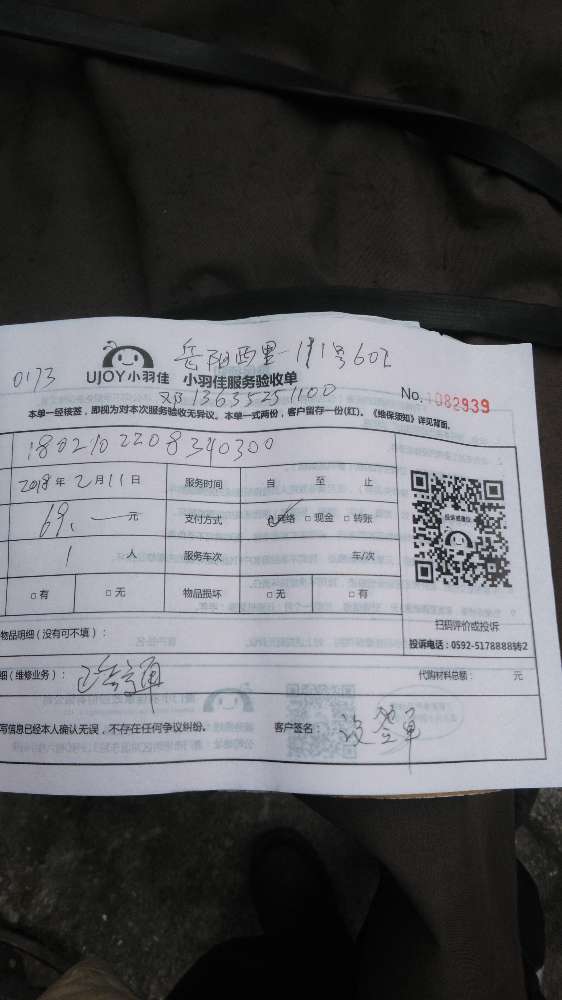 岳阳西里111号602
0173 UJOY小羽佳 小羽佳服务验收单
邓13635251100 No.1082939
本单一经接签，即视为对本次服务验收无异议。本单一式两份，客户留存一份(红)。《维保须知》详见背面。
1802102208340300
2018年2月11日 服务时间 自 至 止
69.一元 支付方式 ☑网络 □现金 □转账
1人 服务车次 车/次
□有 □无 物品损坏 □无 □有
扫码评价或投诉
物品明细（没有可不填）： 投诉电话：0592-5178888转2
细（维修业务）： 疏通 代购材料总额： 元
写信息已经本人确认无误，不存在任何争议纠纷。 客户签名： 没签单